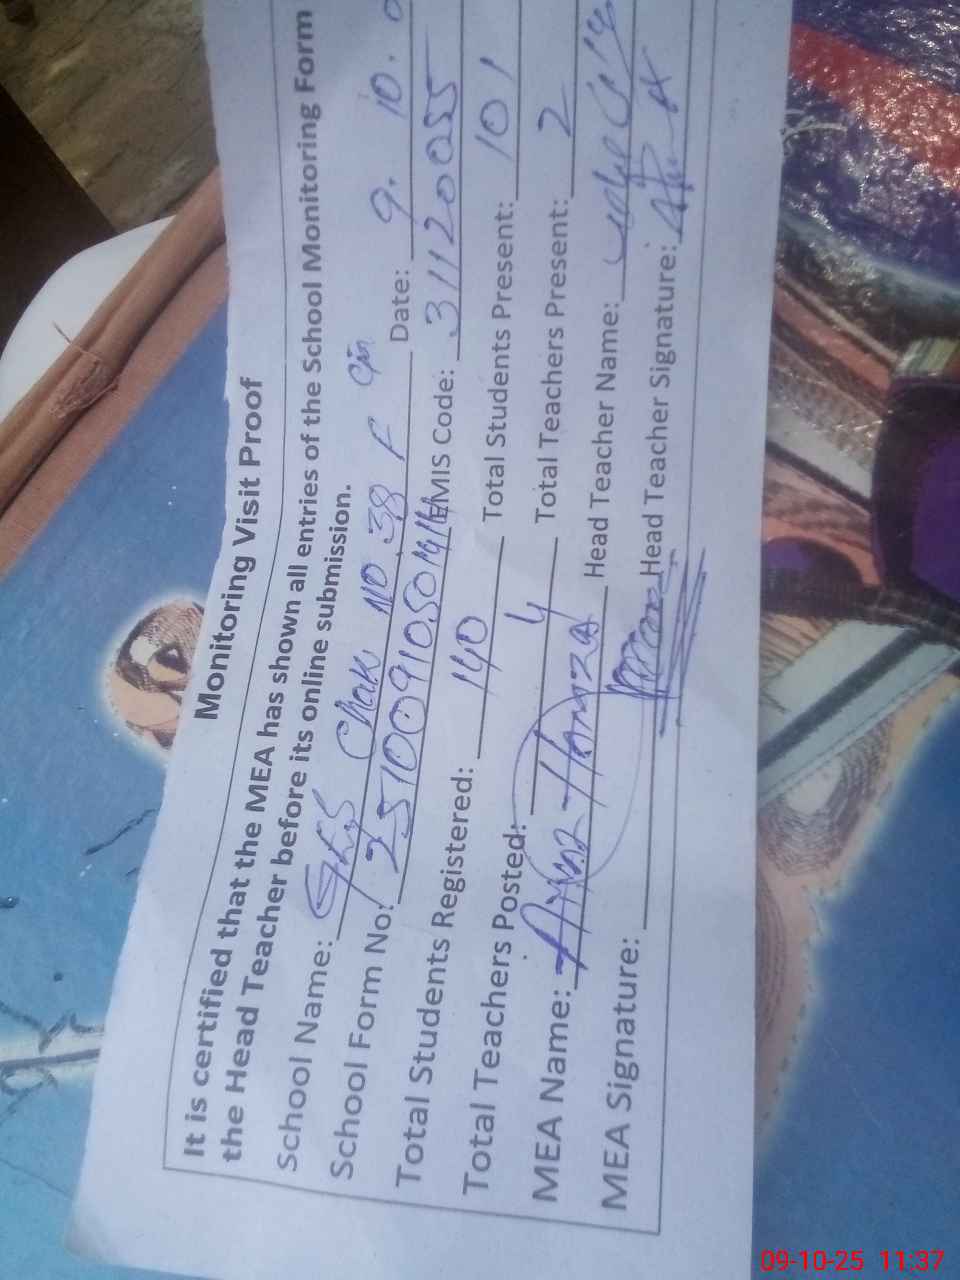 Monitoring Visit Proof
It is certified that the MEA has shown all entries of the School Monitoring Form
the Head Teacher before its online submission.
School Name: Chak NO 38 F Date: 9. 10.
School Form No: EMIS Code: 31120055
Total Students Registered: 140 Total Students Present: 101
Total Teachers Posted: 4 Total Teachers Present: 2
MEA Name: Hamza Head Teacher Name:
MEA Signature: Head Teacher Signature:
09-10-25 11:37